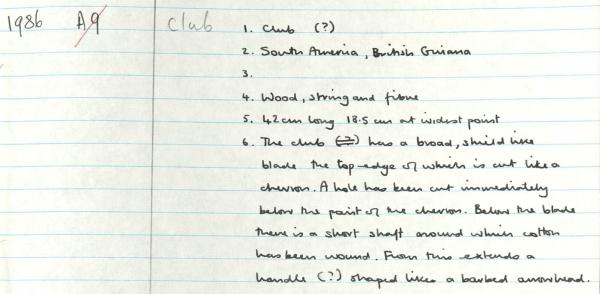 1986 A9 Club 1. Club (?)
2. South America, British Guiana
3.
4. Wood, string and fibre
5. 42cm long 18.5 cm at widest point
6. The club (?) has a broad, shield like
blade the top edge of which is cut like a
chevron. A hole has been cut immediately
below the point of the chevron. Below the blade
there is a short shaft around which cotton
has been wound. From this extends a
handle (?) shaped like a barbed arrowhead.